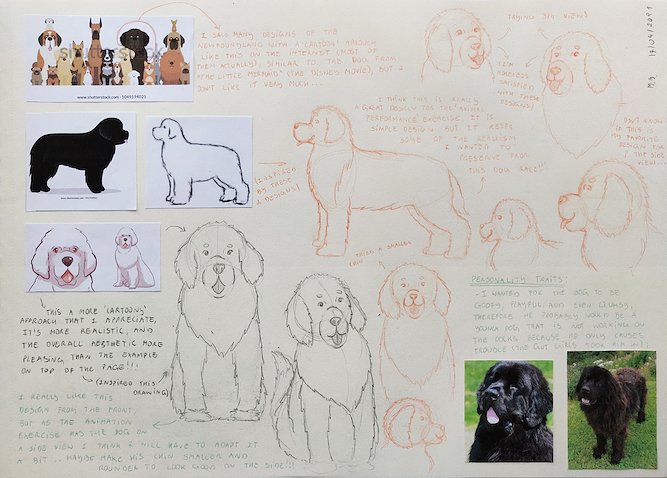 shutterstock
www.shutterstock.com · 1049594025
I SAW MANY DESIGNS OF THE
NEWFOUNDLAND WITH A CARTOONY APPROACH
LIKE THIS ON THE INTERNET (MOST OF
THEM ACTUALLY), SIMILAR TO THE DOG FROM
"THE LITTLE MERMAID" (THE DISNEY MOVIE), BUT I
DON'T LIKE IT VERY MUCH...
TRYING 3/4 VIEW!
M,9 17/04/2021
(I'M
HOPELESS
OBSESSED
WITH THESE
DESIGNS)
I THINK THIS IS REALLY
A GREAT DESIGN FOR THE ANIMAL
PERFORMANCE EXERCISE. IT IS
SIMPLE DESIGN BUT IT KEEPS
SOME OF THE REALISM
I WANTED TO
PRESERVE FROM
THIS DOG RACE!!!
DON'T KNOW
IF THIS IS
MY FAVORITE
DESIGN FOR
THE SIDE
VIEW...
(INSPIRED
BY THESE
2 DESIGNS)
TRIED A SMALLER
CHIN
THIS A MORE 'CARTOONY'
APPROACH THAT I APPRECIATE,
IT'S MORE REALISTIC, AND
THE OVERALL AESTHETIC MORE
PLEASING THAN THE EXAMPLE
ON TOP OF THE PAGE!!!
(INSPIRED THIS
DRAWING)
I REALLY LIKE THIS
DESIGN FROM THE FRONT,
BUT AS THE ANIMATION
EXERCISE HAS THE DOG ON
A SIDE VIEW I THINK I WILL HAVE TO ADAPT IT
A BIT... MAYBE MAKE HIS CHIN SMALLER AND
ROUNDER TO LOOK GOOD ON THE SIDE!!!
PERSONALITY TRAITS:
- I WANTED FOR THE DOG TO BE
GOOFY, PLAYFUL AND EVEN CLUMSY,
THEREFORE HE PROBABLY WOULD BE A
YOUNG DOG, THAT IS NOT WORKING ON
THE DOCKS BECAUSE HE ONLY CAUSES
TROUBLE